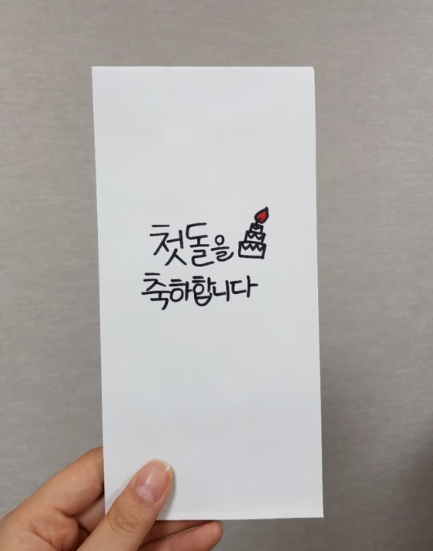 첫돌을
축하합니다